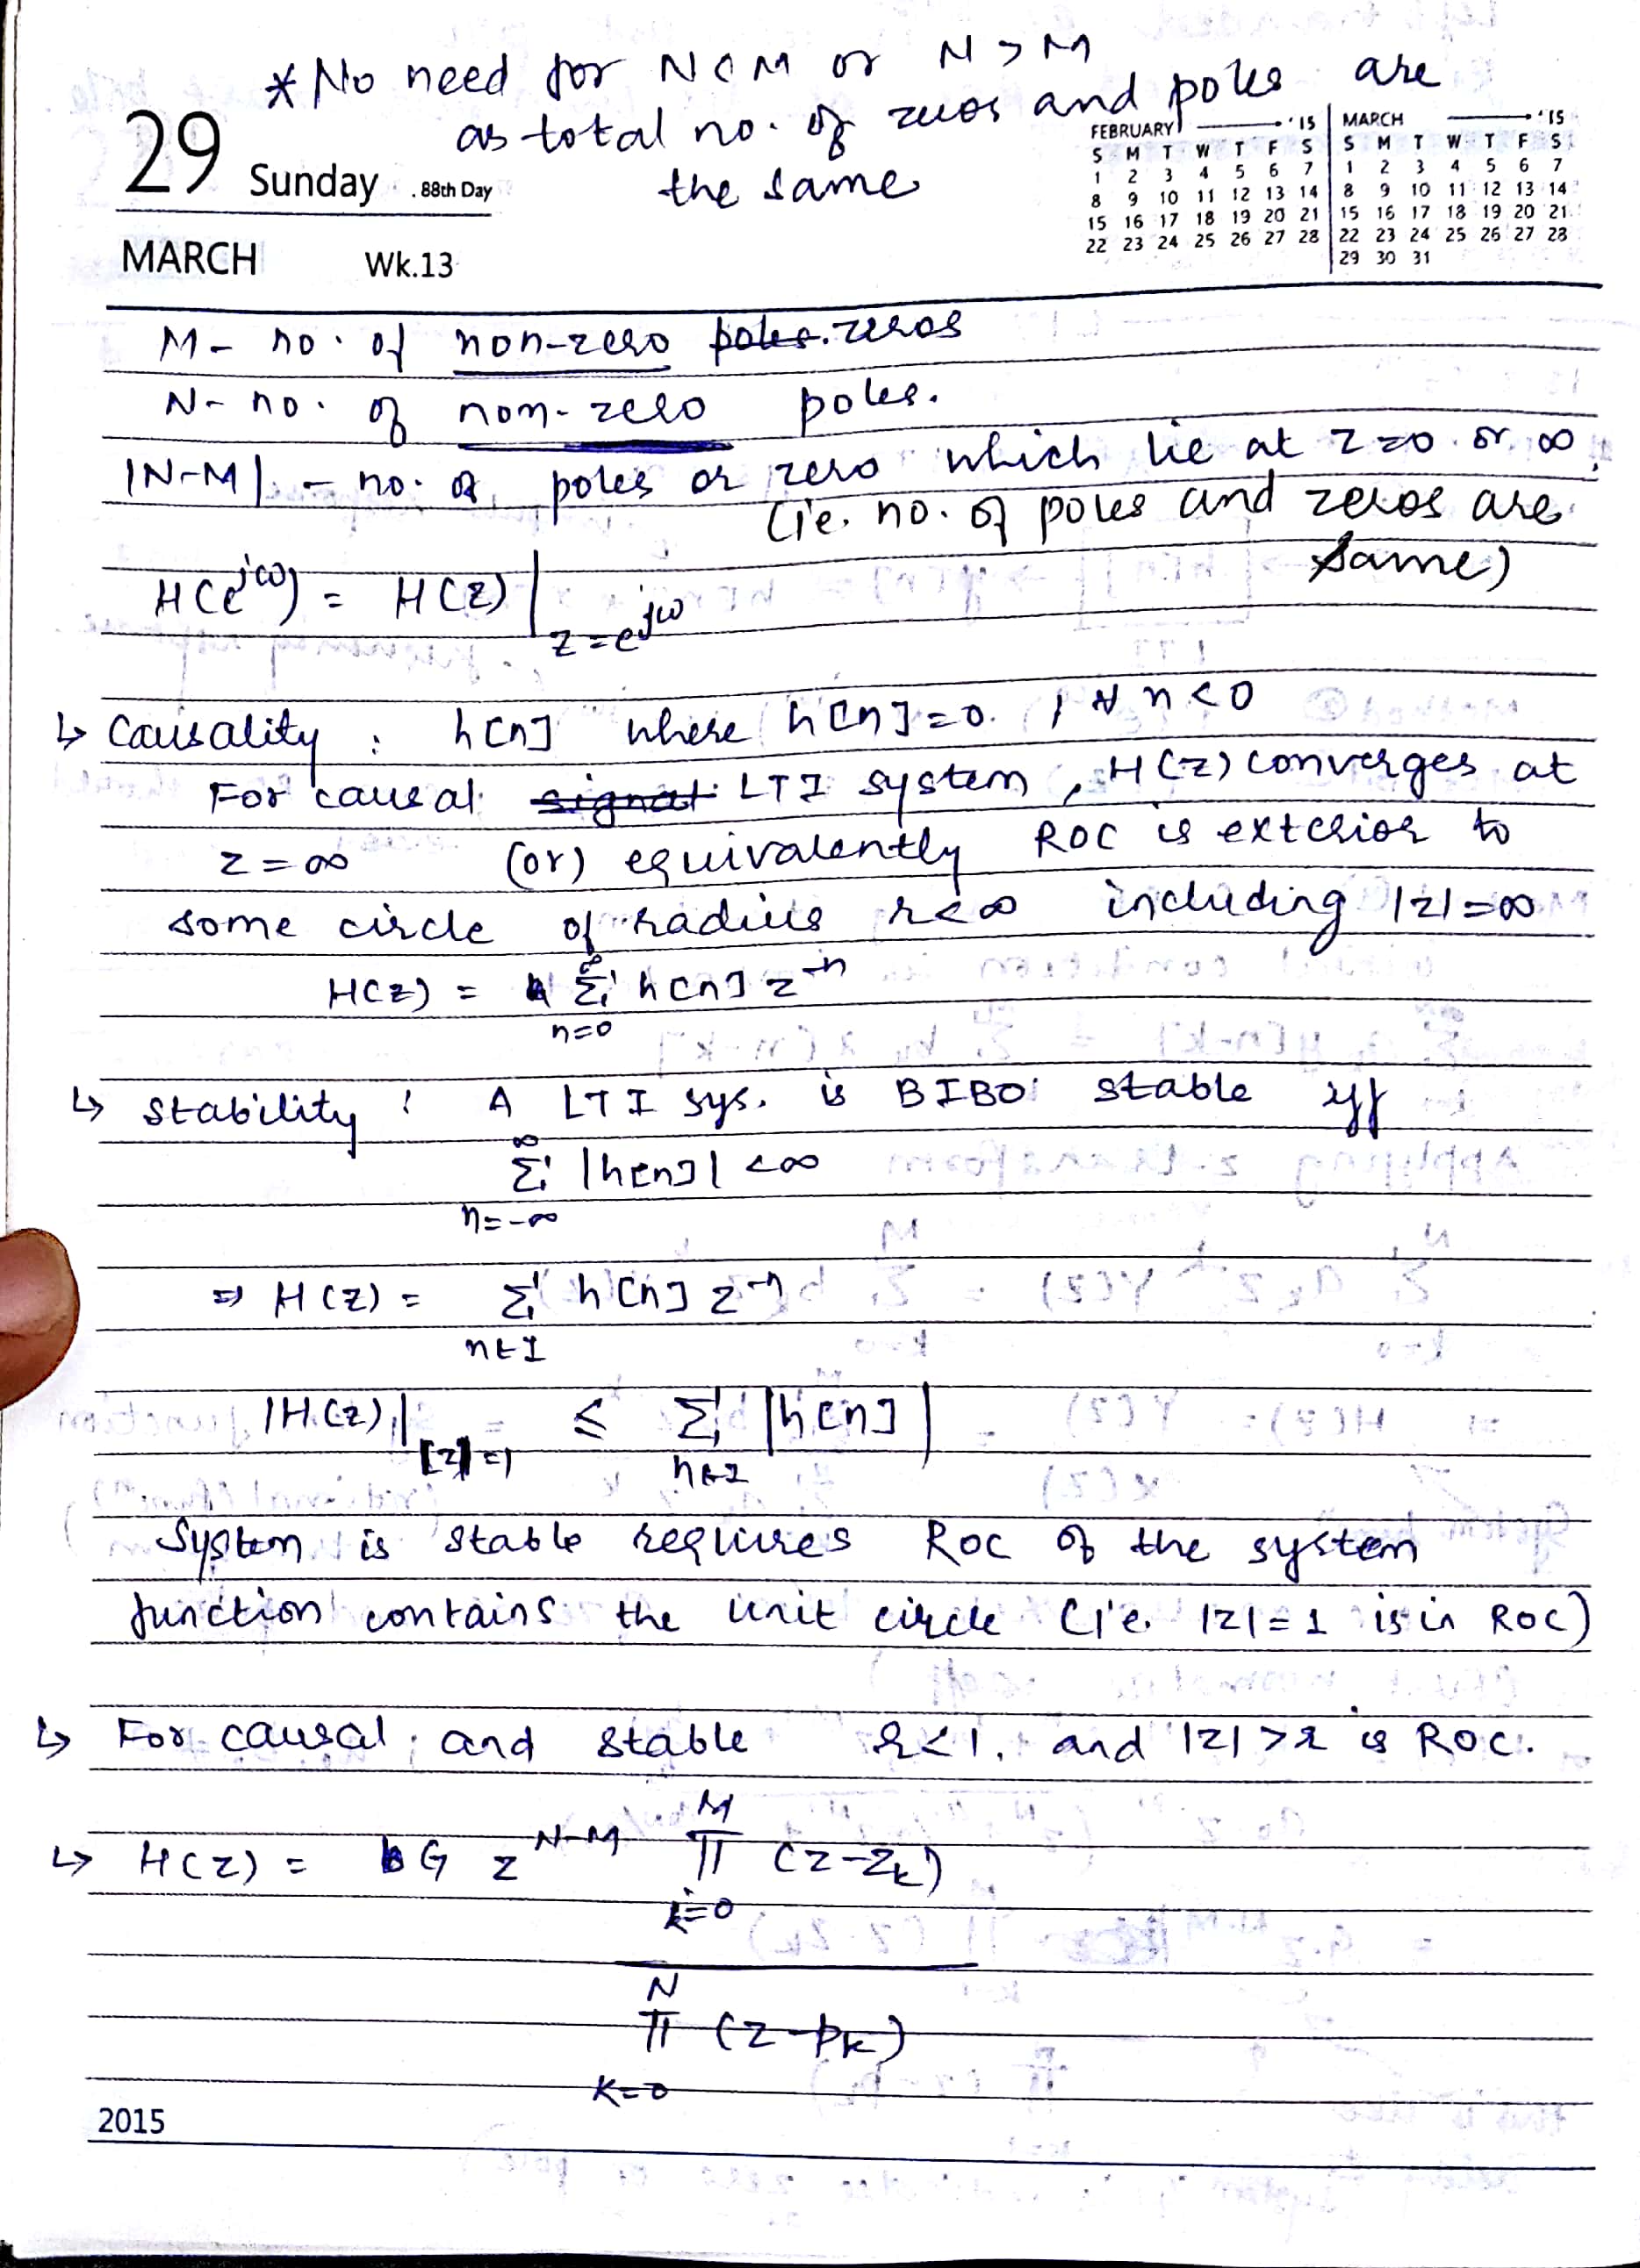 * No need for N<M or N>M
as total no. of zeros and poles are
the same
29 Sunday 88th Day
MARCH Wk.13
FEBRUARY '15
S M T W T F S
1 2 3 4 5 6 7
8 9 10 11 12 13 14
15 16 17 18 19 20 21
22 23 24 25 26 27 28
MARCH '15
S M T W T F S
1 2 3 4 5 6 7
8 9 10 11 12 13 14
15 16 17 18 19 20 21
22 23 24 25 26 27 28
29 30 31
M - no. of non-zero poles. zeros
N - no. of non-zero poles.
|N-M| - no. of poles or zero which lie at z=0 or ∞,
(ie. no. of poles and zeros are
same)
H(e^jω) = H(z)|z=e^jω
↳ Causality : h[n] where h[n]=0. , ∀ n<0
For causal signal LTI system, H(z) converges at
z=∞ (or) equivalently ROC is exterior to
some circle of radius r<∞ including |z|=∞
H(z) = ∞ Σ n=0 h[n] z^-n
↳ Stability : A LTI sys. is BIBO stable iff
∞ Σ n=-∞ |h[n]| <∞
⇒ H(z) = Σ n∈I h[n] z^-n
|H(z)| |z|=1 ≤ Σ n∈I |h[n]|
System is stable requires ROC of the system
function contains the unit circle (i'e. |z|=1 is in ROC)
↳ For causal and stable r<1, and |z|>r is ROC.
↳ H(z) = G z^N-M M Π k=0 (z-z_k)
N Π k=0 (z-p_k)
2015